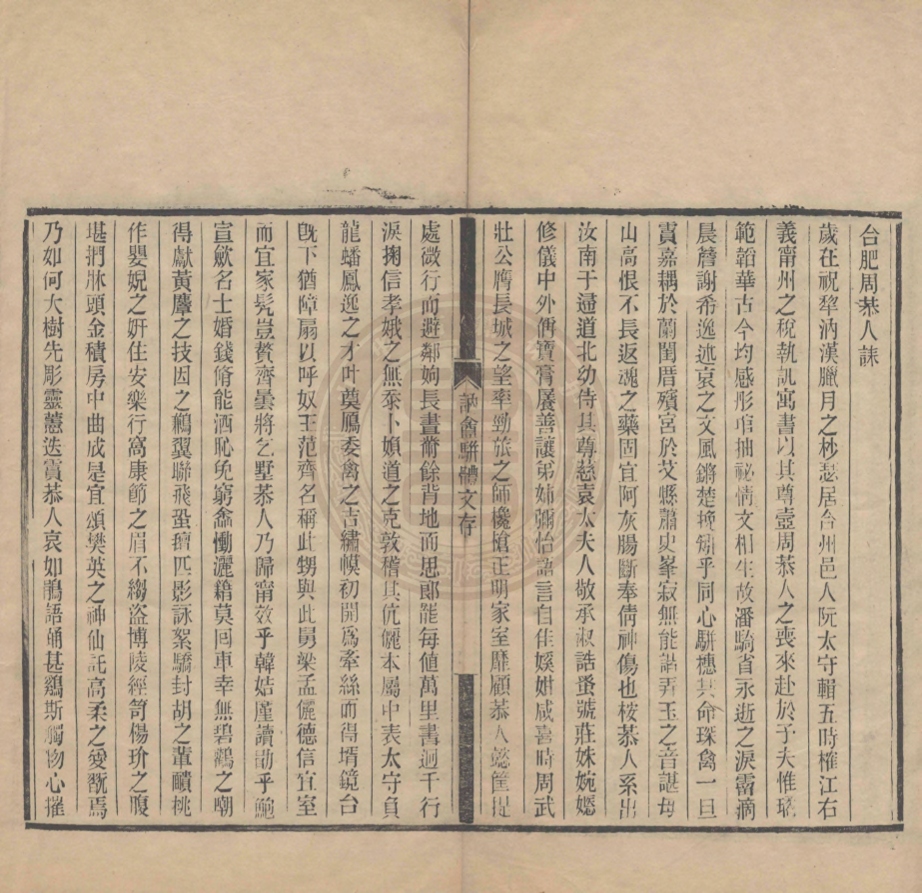 合肥周恭人誄
歲在祝犁汭漢臘月之杪瑟居台州邑人阮太守輯五時榷江右
義甯州之稅執訊寓書以其尊壼周恭人之喪來赴於予夫惟瑤
範韜華古今均感彤琯抽祕情文相生故潘騎省永逝之淚霤滴
晨簷謝希逸述哀之文風鏘楚挽矧乎同心駢穗其命琛禽一旦
賓嘉耦於蘭閨厝殯宮於艾縣蕭史峯寂無能語弄玉之音諶母
山高恨不長返魂之藥固宜阿灰腸斷奉倩神傷也桉恭人系出
汝南于遥道北幼侍其尊慈袁太夫人敬承淑誥蚤號莊姝婉嫕
修儀中外儕寶膏屢善讓弟姊彌怡語言自佳媛媼咸喜時周武
壯公膺長城之望率勁旅之師欃槍正明家室靡顧恭人懿筐提
訥盦駢體文存
處微行而避鄰姁長晝䉛餘背地而思郎罷每値萬里書迥千行
淚掬信孝娥之無忝卜嬪道之克敦稽其伉儷本屬中表太守負
龍蟠鳳逸之才叶奠鴈委禽之吉繡幙初開爲牽絲而得壻鏡台
旣下猶障扇以呼奴王范齊名稱此甥與此舅梁孟儷德信宜室
而宜家髡豈贅齊曇將乞墅恭人乃歸甯效乎韓姞厪讀助乎鮑
宣歛名士婚錢脩能洒恥免窮嵞慟灑耤莫囘車幸無碧鸛之嘲
得獻黃麞之技因之鶼翼聯飛蛩䠥匹影詠絮驕封胡之輩饋桃
作嬰婗之姸住安樂行窩康節之眉不縐盜博陵經笥楊玠之腹
堪捫牀頭金積房中曲成是宜頌樊英之神仙託高柔之愛翫焉
乃如何大樹先彫靈蓍迭實恭人哀如鵑語痛甚鷄斯觸物心摧